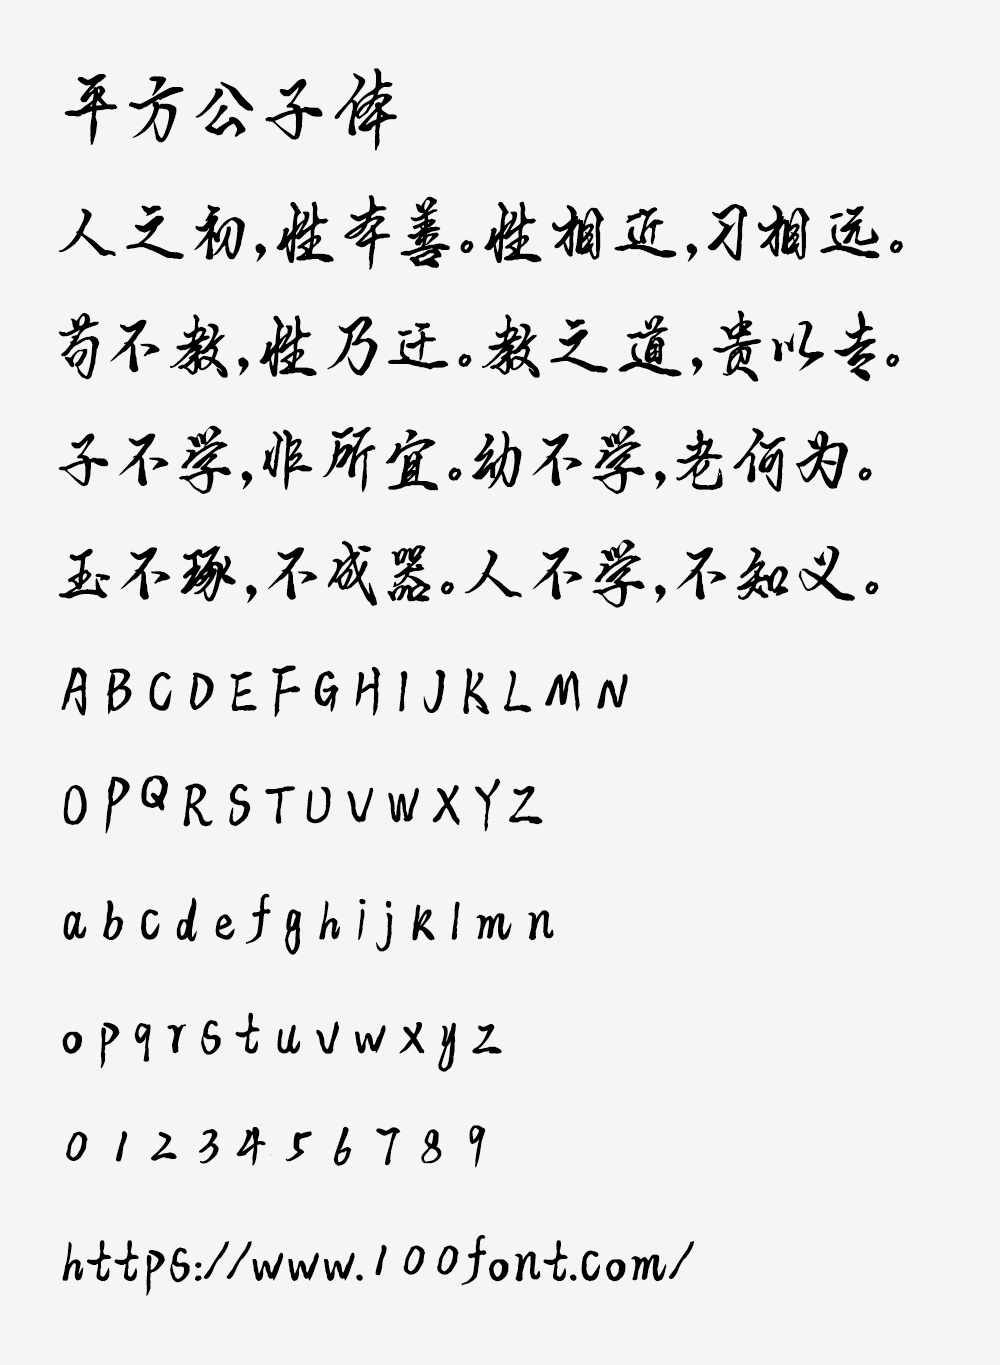 平方公子体
人之初,性本善。性相近,习相远。
苟不教,性乃迁。教之道,贵以专。
子不学,非所宜。幼不学,老何为。
玉不琢,不成器。人不学,不知义。
ABCDEFGHIJKLMN
OPQRSTUVWXYZ
abcdefghijklmn
opqrstuvwxyz
0123456789
https://www.100font.com/